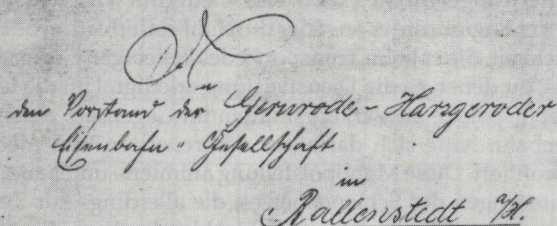 An
den Vorstand der Gernrode-Harzgeroder
Eisenbahn-Gesellschaft
in
Ballenstedt a/H.